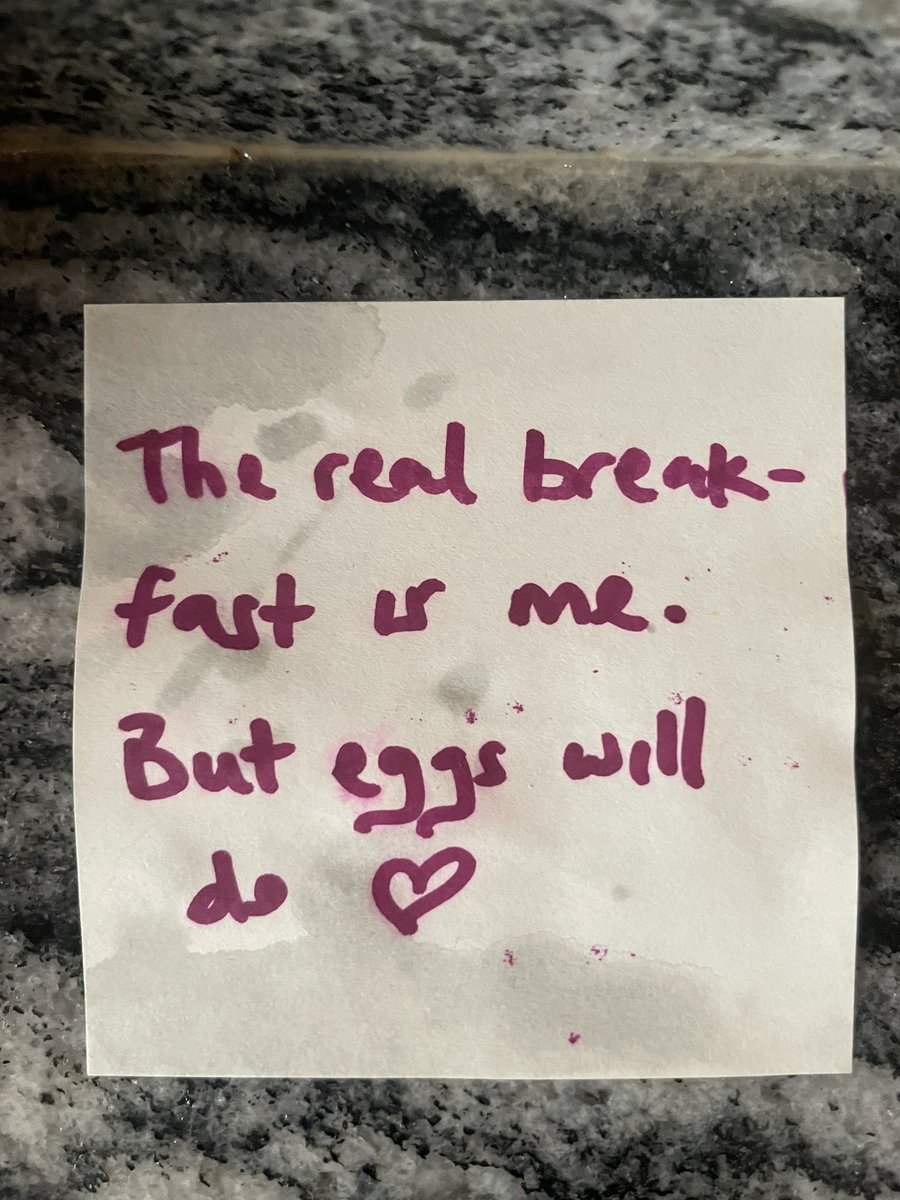 The real break-
fast is me.
But eggs will
do ♡